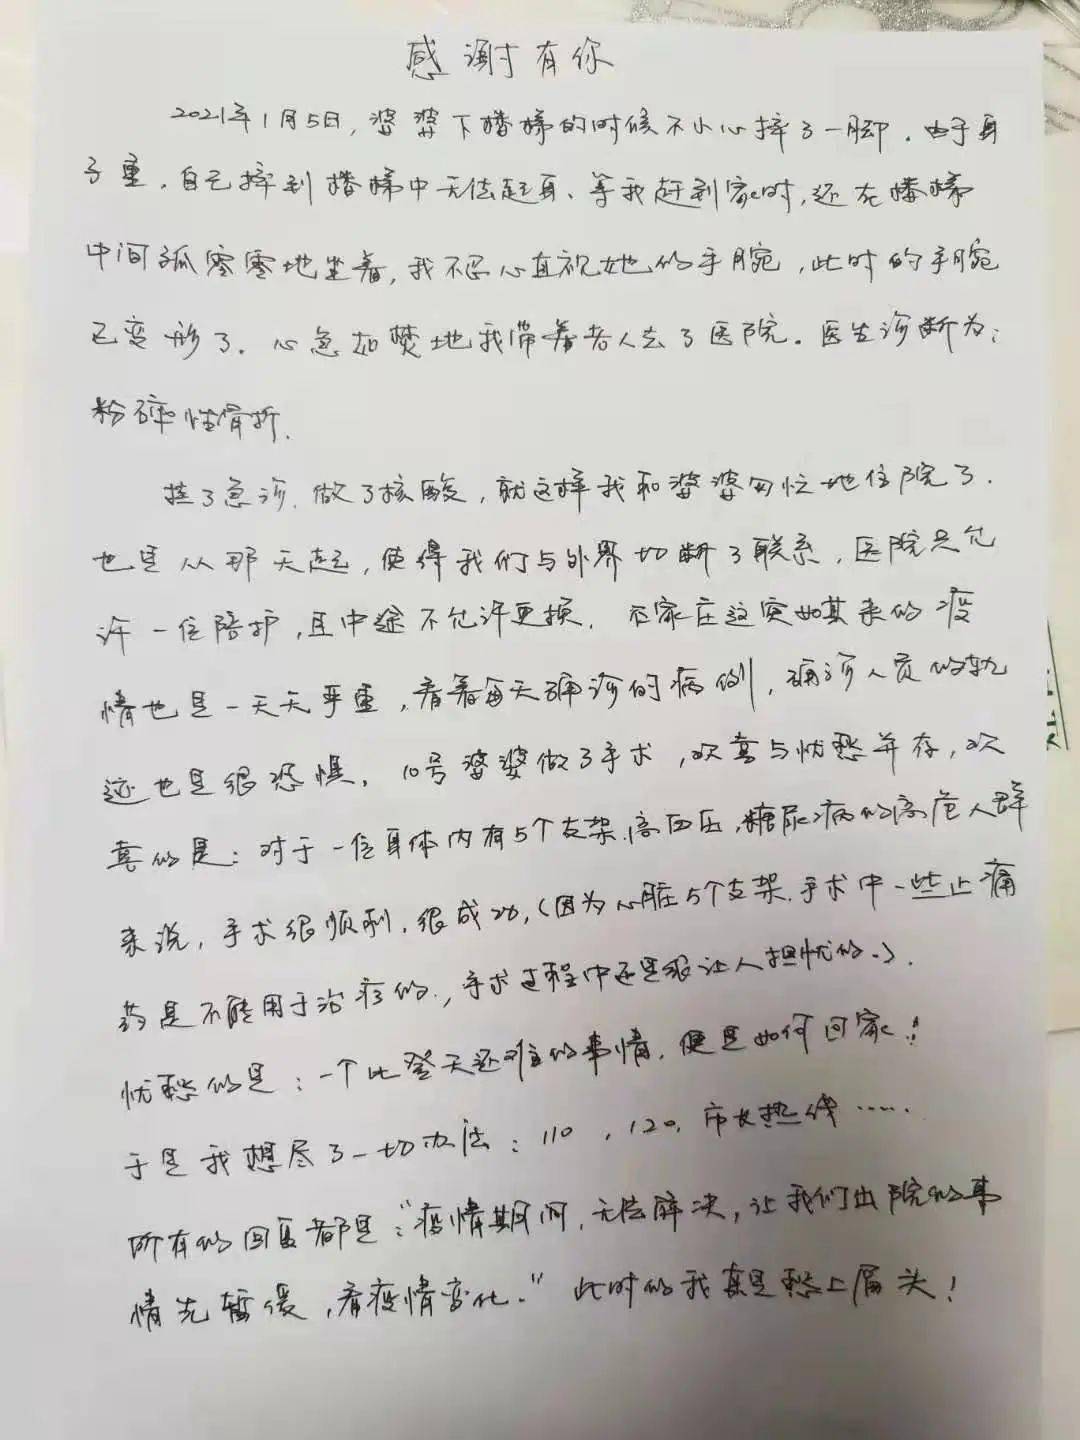 感谢有你
2021年1月5日，婆婆下楼梯的时候不小心摔了一脚．由于身
子重，自己摔到楼梯中无法起身、等我赶到家时，还在楼梯
中间孤零零地坐着，我不忍心直视她的手腕，此时的手腕
已变形了．心急如焚地我带着老人去了医院。医生诊断为：
粉碎性骨折．
挂了急诊．做了核酸，就这样我和婆婆匆忙地住院了．
也是从那天起，使得我们与外界切断了联系，医院只允
许一位陪护，且中途不允许更换．石家庄这突如其来的疫
情也是一天天严重，看着每天确诊的病例，确诊人员的轨
迹也是很恐惧．10号婆婆做了手术，欢喜与忧愁并存，欢
喜的是：对于一位身体内有5个支架、高血压，糖尿病的高危人群
来说，手术很顺利．很成功，（因为心脏5个支架．手术中一些止痛
药是不能用于治疗的．，手术过程中还是很让人担忧的．）．
忧愁的是：一个比登天还难的事情．便是如何回家！
于是我想尽了一切办法：110，120，市长热线……
所有的回复都是：“疫情期间，无法解决，让我们出院的事
情先暂缓，看疫情变化．”此时的我真是愁上眉头！